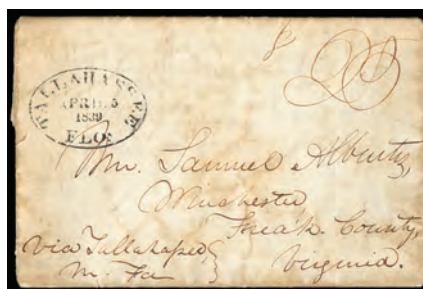 TALLAHASSEE
APRIL 5
1839
FLO:
25
Mr. Samuel Alburtz,
Winchester
Fred'k. County,
Virginia.
via Tallahassee,
M. Fa